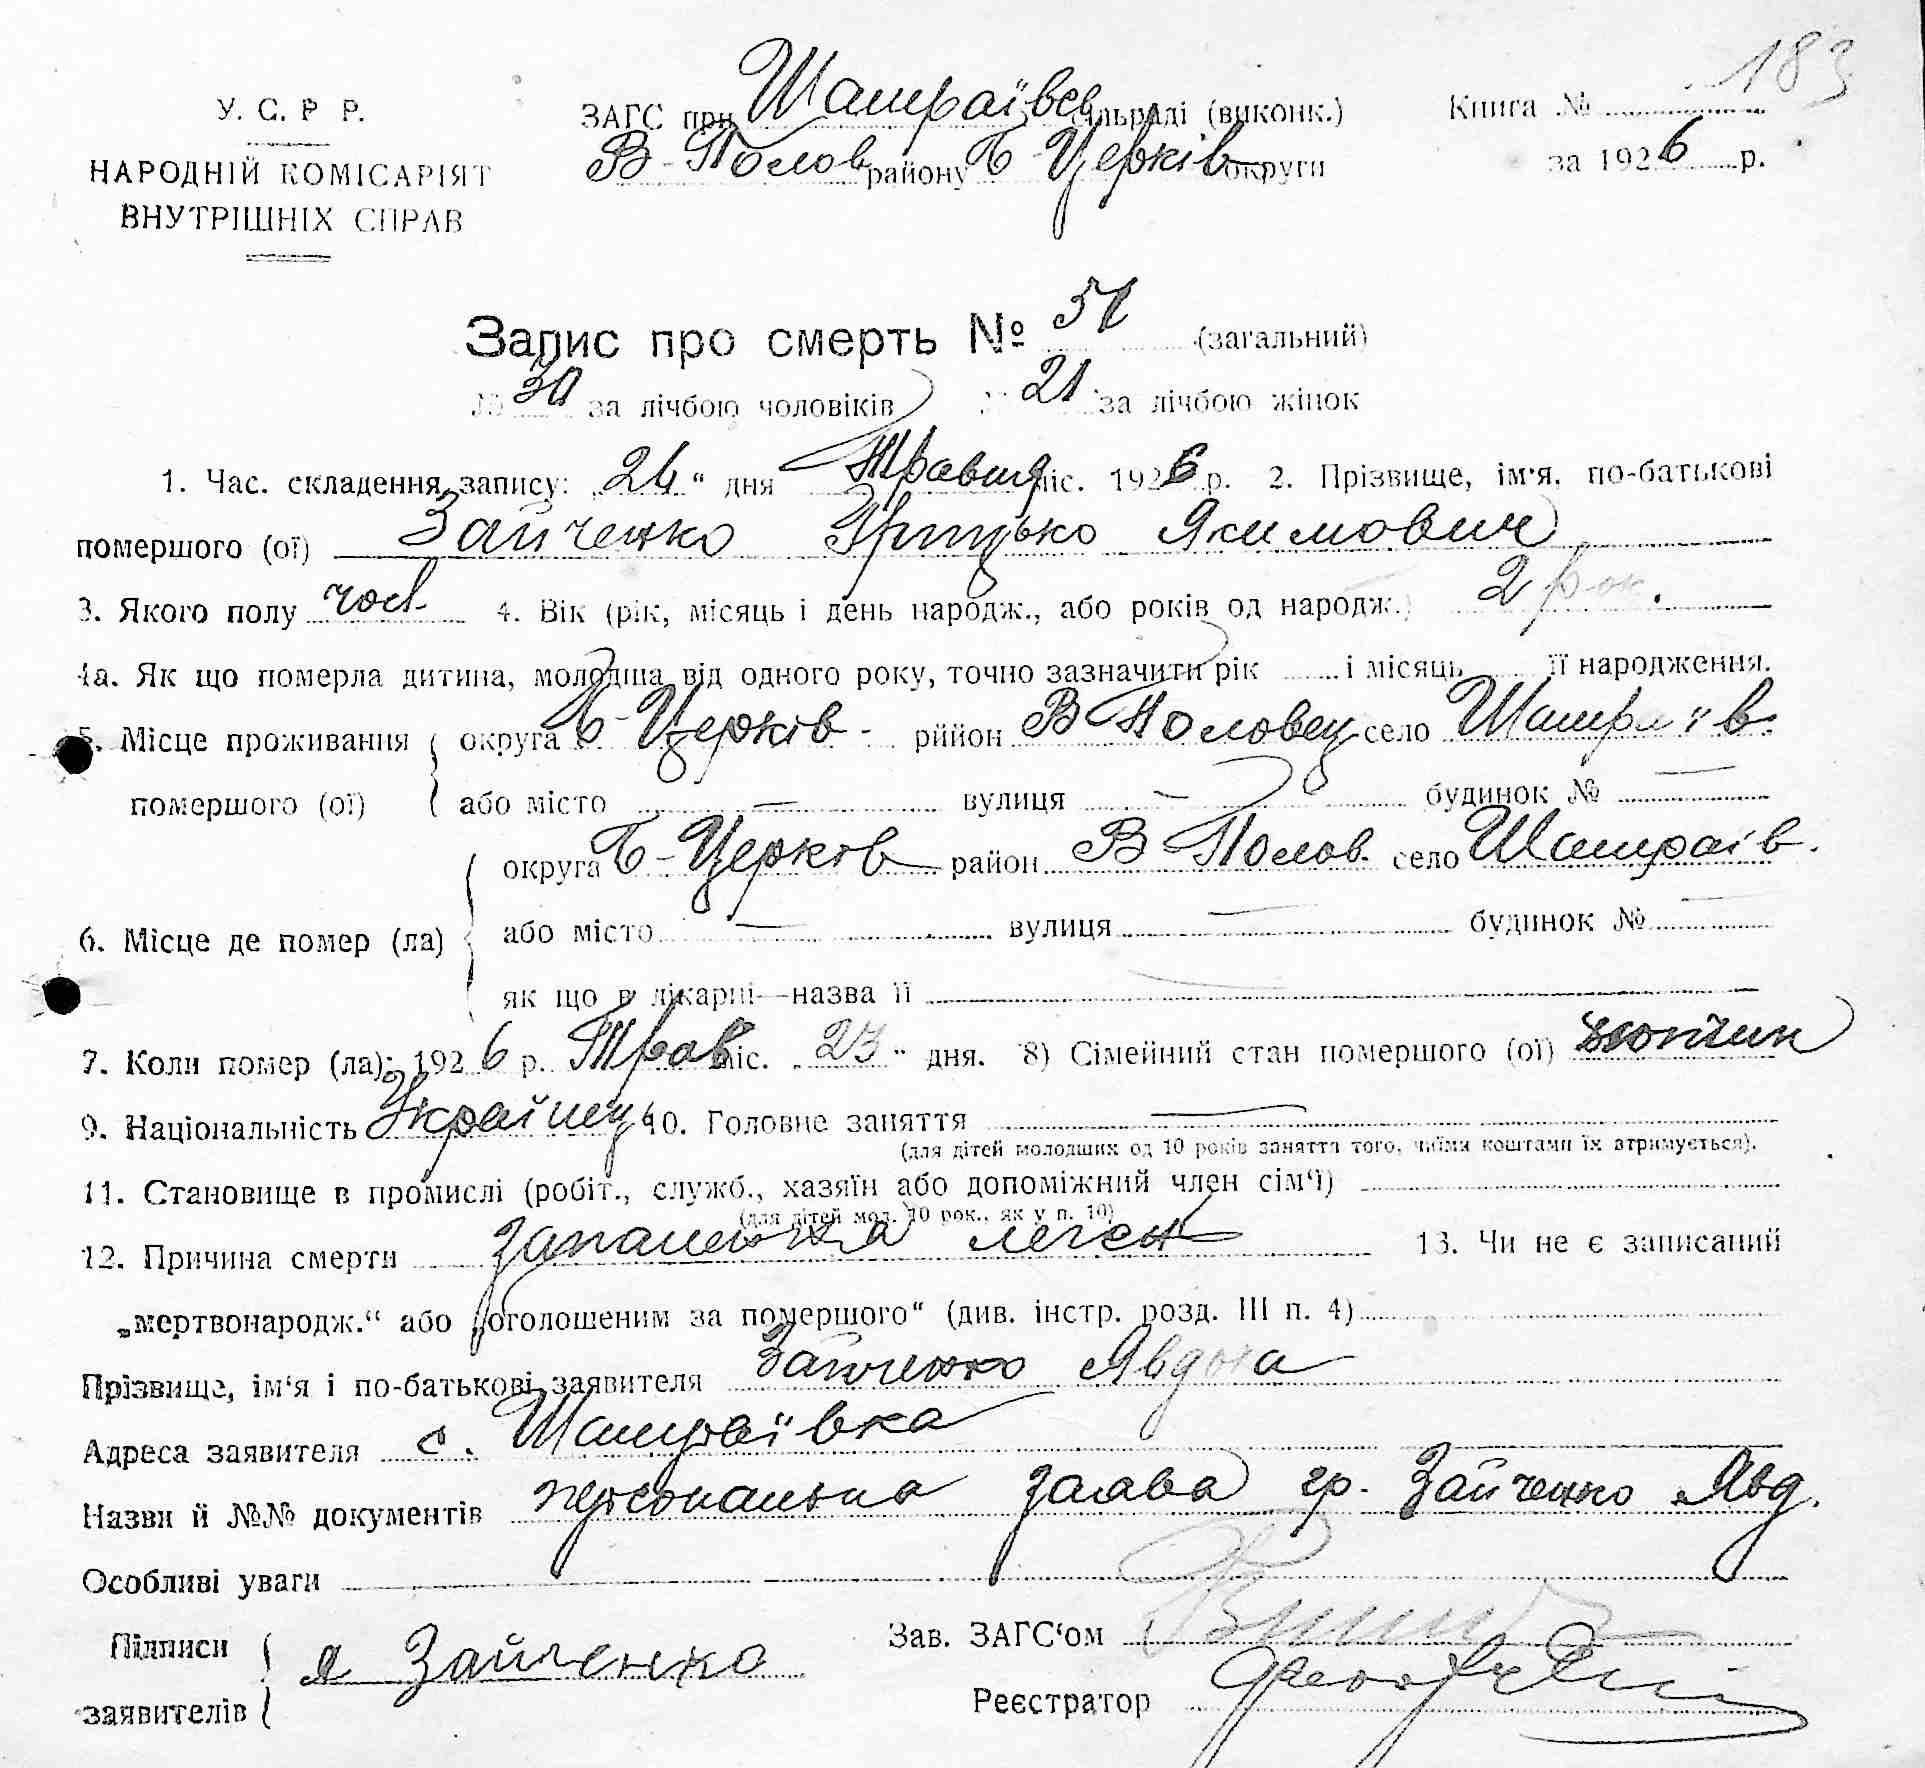 183
У. С. Р Р.
НАРОДНІЙ КОМІСАРІЯТ
ВНУТРІШНІХ СПРАВ
ЗАГС при Шамраївсь сільраді (виконк.)
В-Полов району Б-Церків округи
Книга №
за 1926 р.
Запис про смерть № 51 (загальний)
№ 30 за лічбою чоловіків № 21 за лічбою жінок
1. Час. складення запису: „26“ дня Травня міс. 1926 р. 2. Прізвище, ім'я, по-батькові
помершого (ої) Зайченко Грицько Якимович
3. Якого полу чол. 4. Вік (рік, місяць і день народж., або років од народж.) 2 рок.
4а. Як що померла дитина, молодша від одного року, точно зазначити рік і місяць її народження.
5. Місце проживання округа Б-Церків - рийон В Половец село Шамраїв.
помершого (ої) або місто — вулиця — будинок № —
округа Б-Церків район В Полов. село Шамраїв.
6. Місце де помер (ла) або місто — вулиця — будинок № —
як що в лікарні—назва її —
7. Коли помер (ла): 1926 р. Трав міс. „23“ дня. 8) Сімейний стан помершого (ої)
9. Національність Українець 10. Головне заняття —
(для дітей молодших од 10 років заняття того, чиїми коштами їх втримується).
11. Становище в промислі (робіт., служб., хазяїн або допоміжний член сім'ї)
(для дітей мол. 10 рок., як у п. 10)
12. Причина смерти Запалення леген 13. Чи не є записаний
„мертвонародж.“ або „оголошеним за помершого“ (див. інстр. розд. III п. 4)
Прізвище, ім'я і по-батькові заявителя Зайченко Явдоха
Адреса заявителя с. Шамраївка
Назви й №№ документів персональна заява гр. Зайченко Явд.
Особливі уваги
Підписи
заявителів Я Зайченко
Зав. ЗАГС'ом
Реєстратор